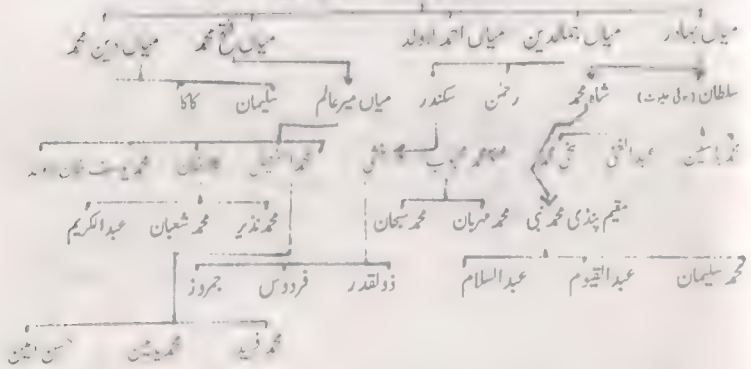 میاں بہادر میاں جمالدین میاں احمد اولد میاں فتح محمد میاں دین محمد
سلطان شاہ محمد رحمٰن سکندر میاں میر عالم سلیمان کاکا
محمد یاسین عبدالغنی محمد محبوب
مقیم پنڈی محمد نبی محمد مہربان محمد سبحان محمد نذیر محمد شعبان عبدالکریم
محمد سلیمان عبدالقیوم عبدالسلام ذولقدر فردوس جمروز
محمد فرید محمد یاسین